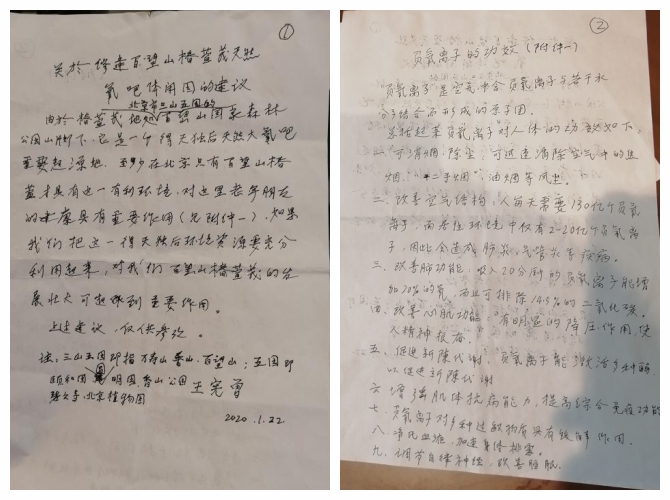 ①
关于修造百望山椿萱茂天然
氧吧休闲园的建议
北京市三山五园的
由於椿萱茂地处百望山国家森林
公园山脚下，它是一个得天独后天然大氧吧
重要起源地，至少在北京只有百望山椿
萱才具有这一有利环境，对这里老年朋友
的健康具有重要作用（见附件一），如果
我们把这一得天独后环境资源更充分
利用起来，对我们百望山椿萱茂的发
展壮大可起到重要作用。
上述建议，仅供参考。
注：三山五园即指万寿山香山、百望山；五园即
颐和园 圆明园 香山公园
北京植物园
王宪曾
2020.1.22
②
负氧离子的功效（附件一）
负氧离子是空气中含负氧离子与若干水
分子结合而形成的原子团。
总括起来负氧离子对人体的功效如下：
一、可消烟、除尘，可迅速消除空气中的
烟、"二手烟"、油烟等
二、改善空气结构，人每天需要130亿个负氧
离子，而居住环境中仅有2-20亿个负氧离
子，因此会造成肺炎、气管炎等疾病。
三、改善肺功能，吸入20分钟的负氧离子能增
加20%的氧，而且可排除14.5%的二氧化碳。
四、改善心肌功能，有明显的降压作用，使
人精神
五、促进新陈代谢，负氧离子能激活多种酶
以促进新陈代谢
六、增强肌体抗病能力，提高综合免疫功能
七、负氧离子对多种过敏物质具有缓解作用。
八、净化血液，加速身体排毒。
九、调节自律神经，改善睡眠。